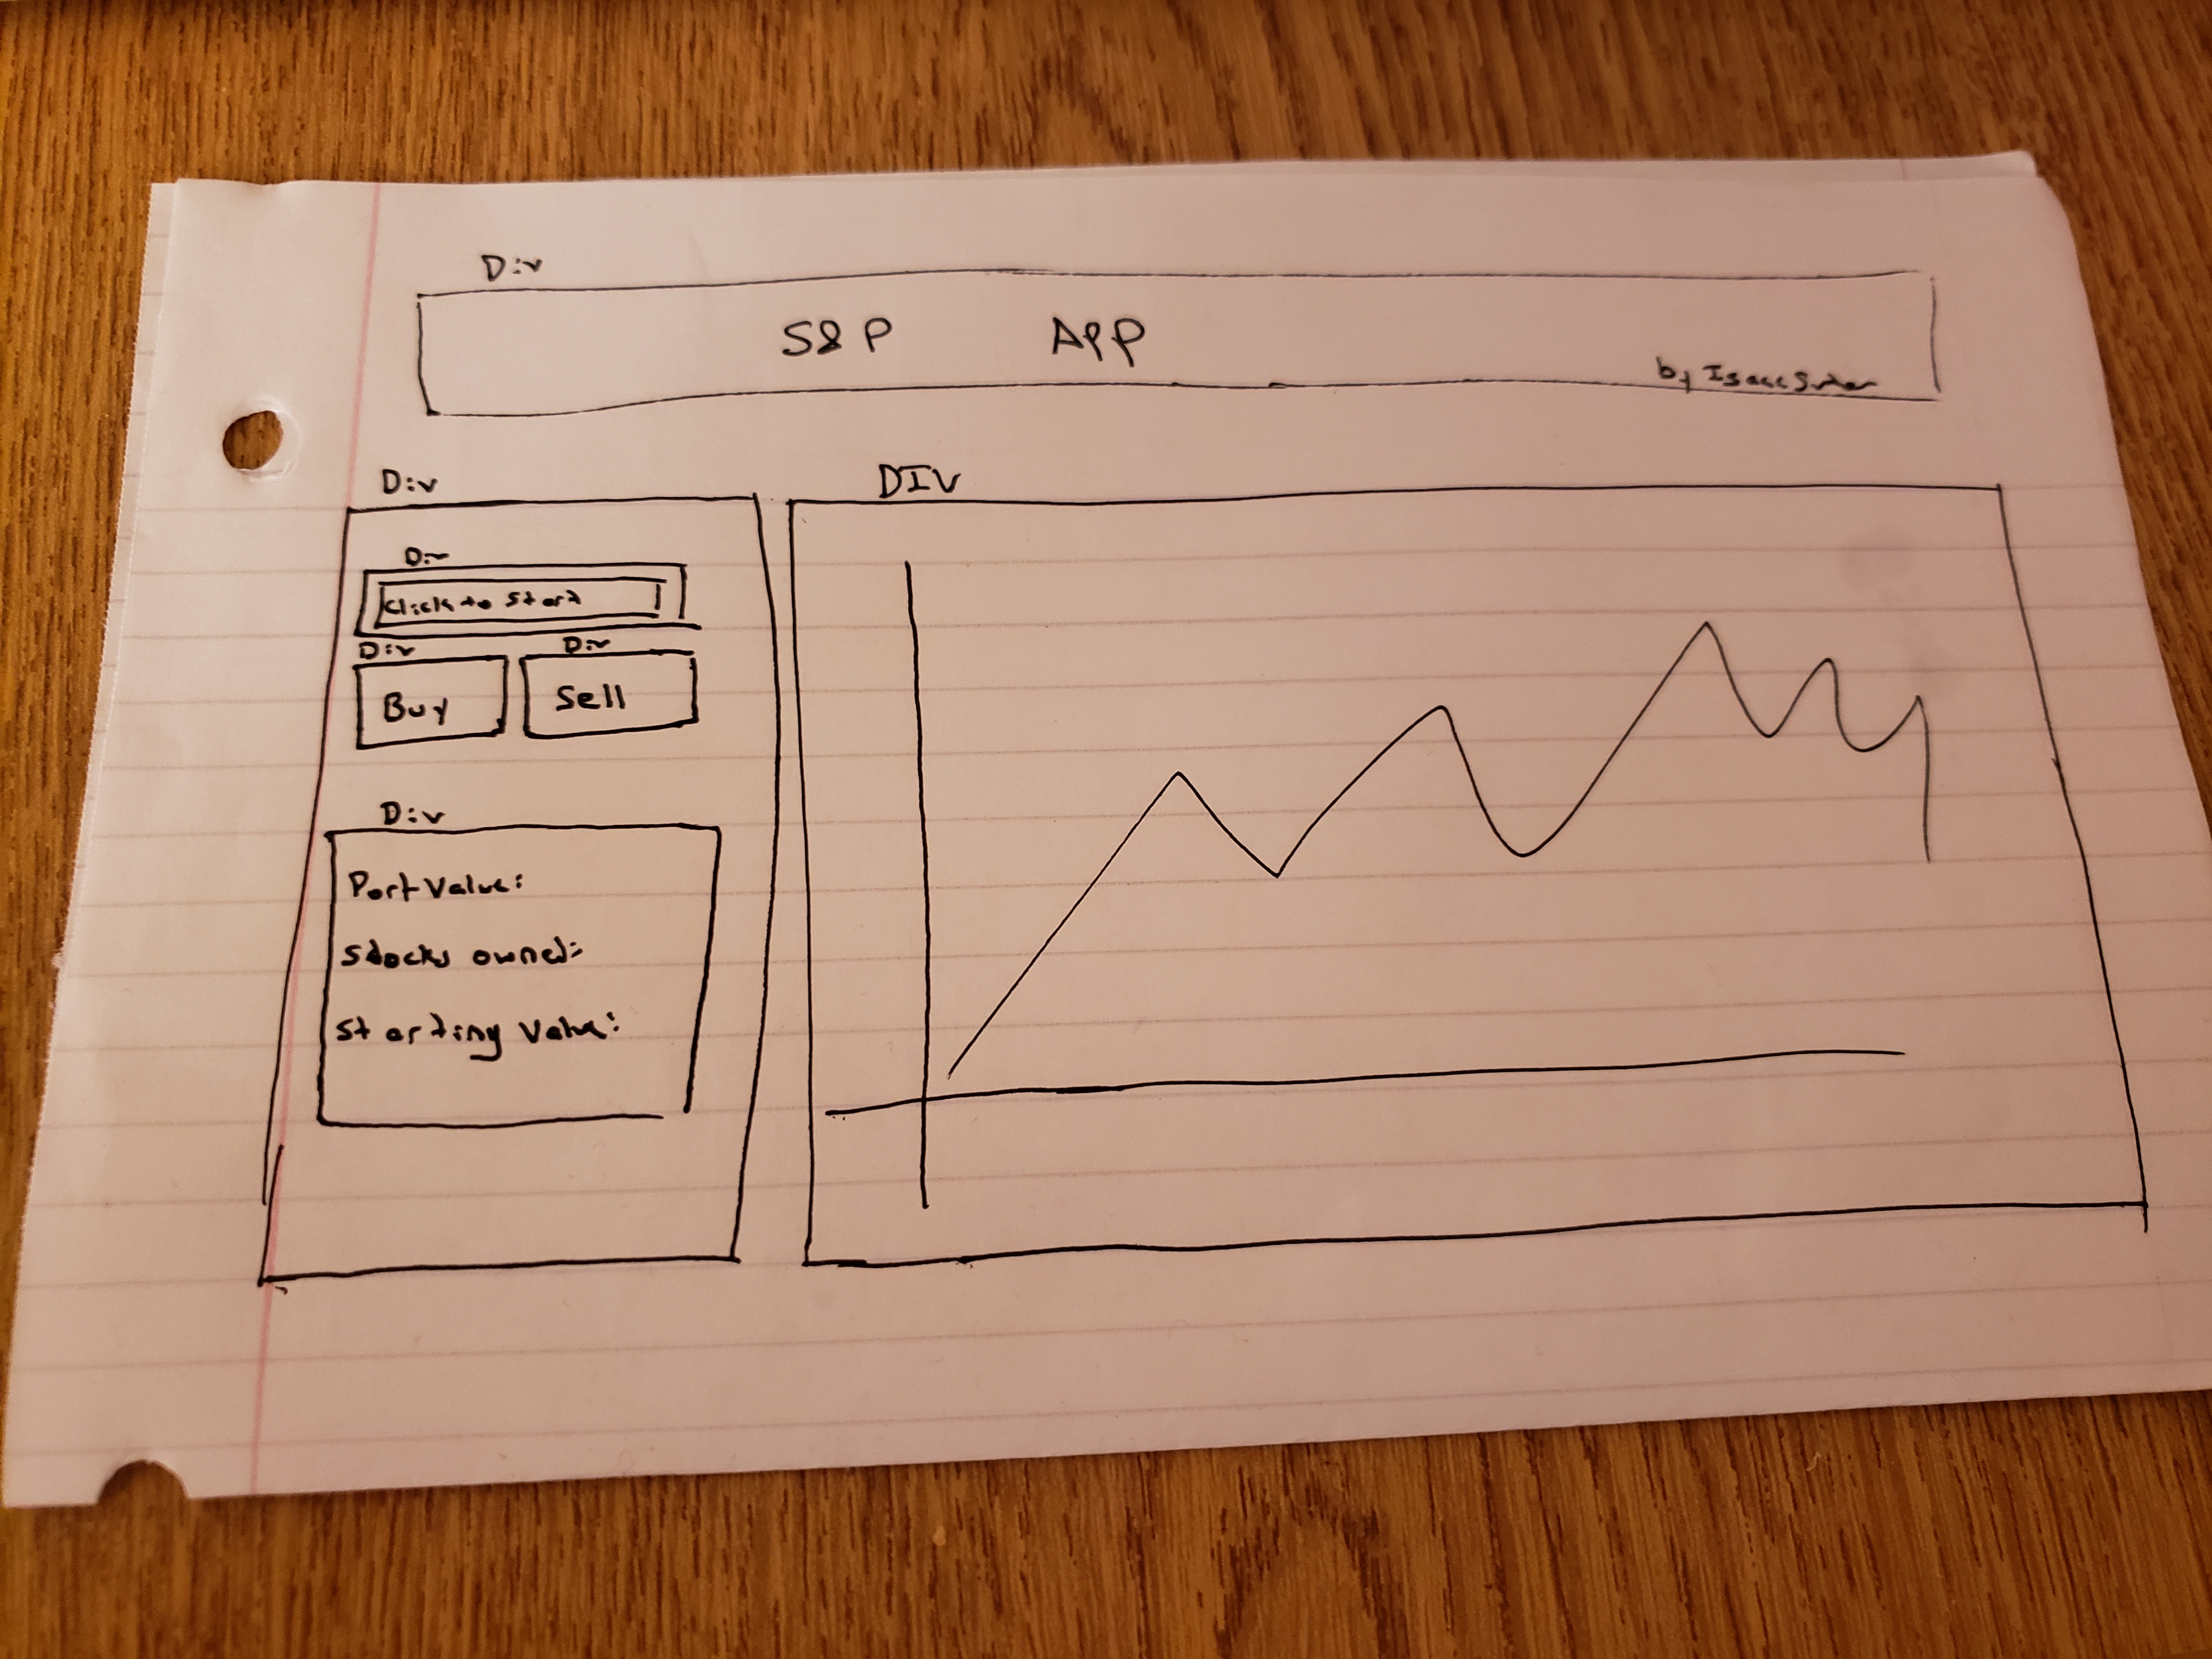 Div
S&P APP
by Isaac Suter
Div
Div
Click to start
Div
Div
Buy
Sell
Div
Port Value:
Stocks owned:
Starting Value:
DIV